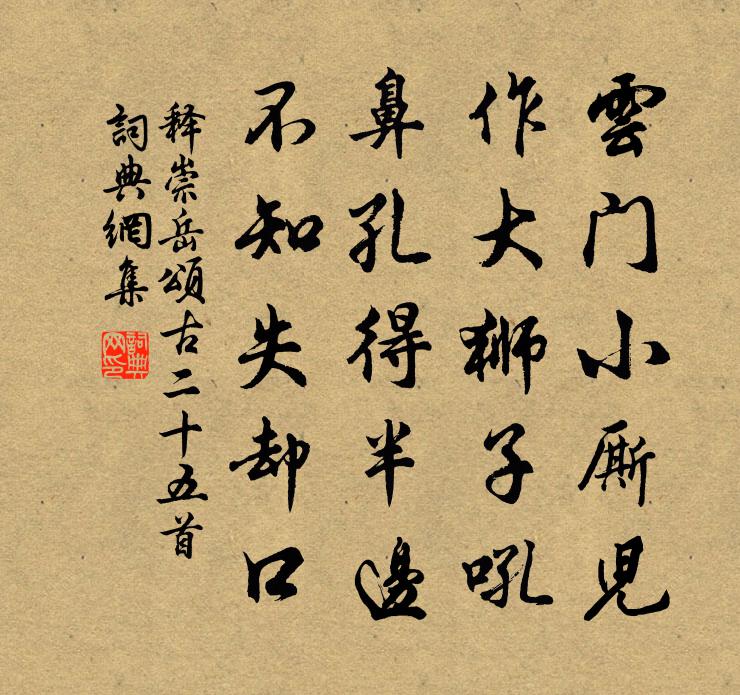 雲门小厮兒
作大獅子吼
鼻孔得半邊
不知失却口
释崇岳頌古二十五首
詞典網集
詞典网印